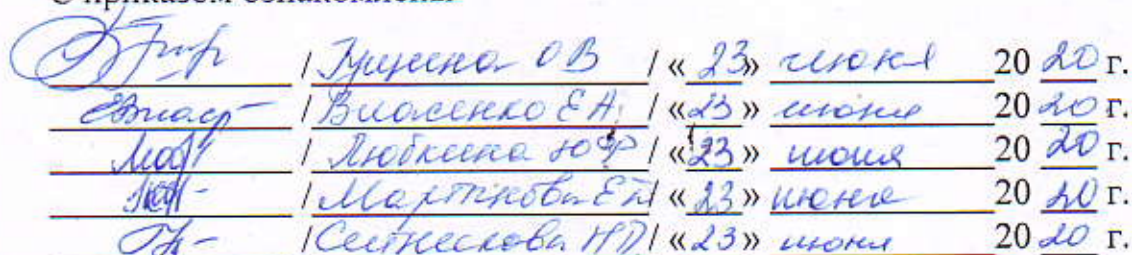 С приказом ознакомлены
/ О В / « 23» июня 20 20 г.
/ Власенко Е А. / «23» июня 20 20 г.
/ Любкина Ю Ф / «23» июня 20 20 г.
/ Мартынова Е / « 23» июня 20 20 г.
/ Н П / « 23» июня 20 20 г.